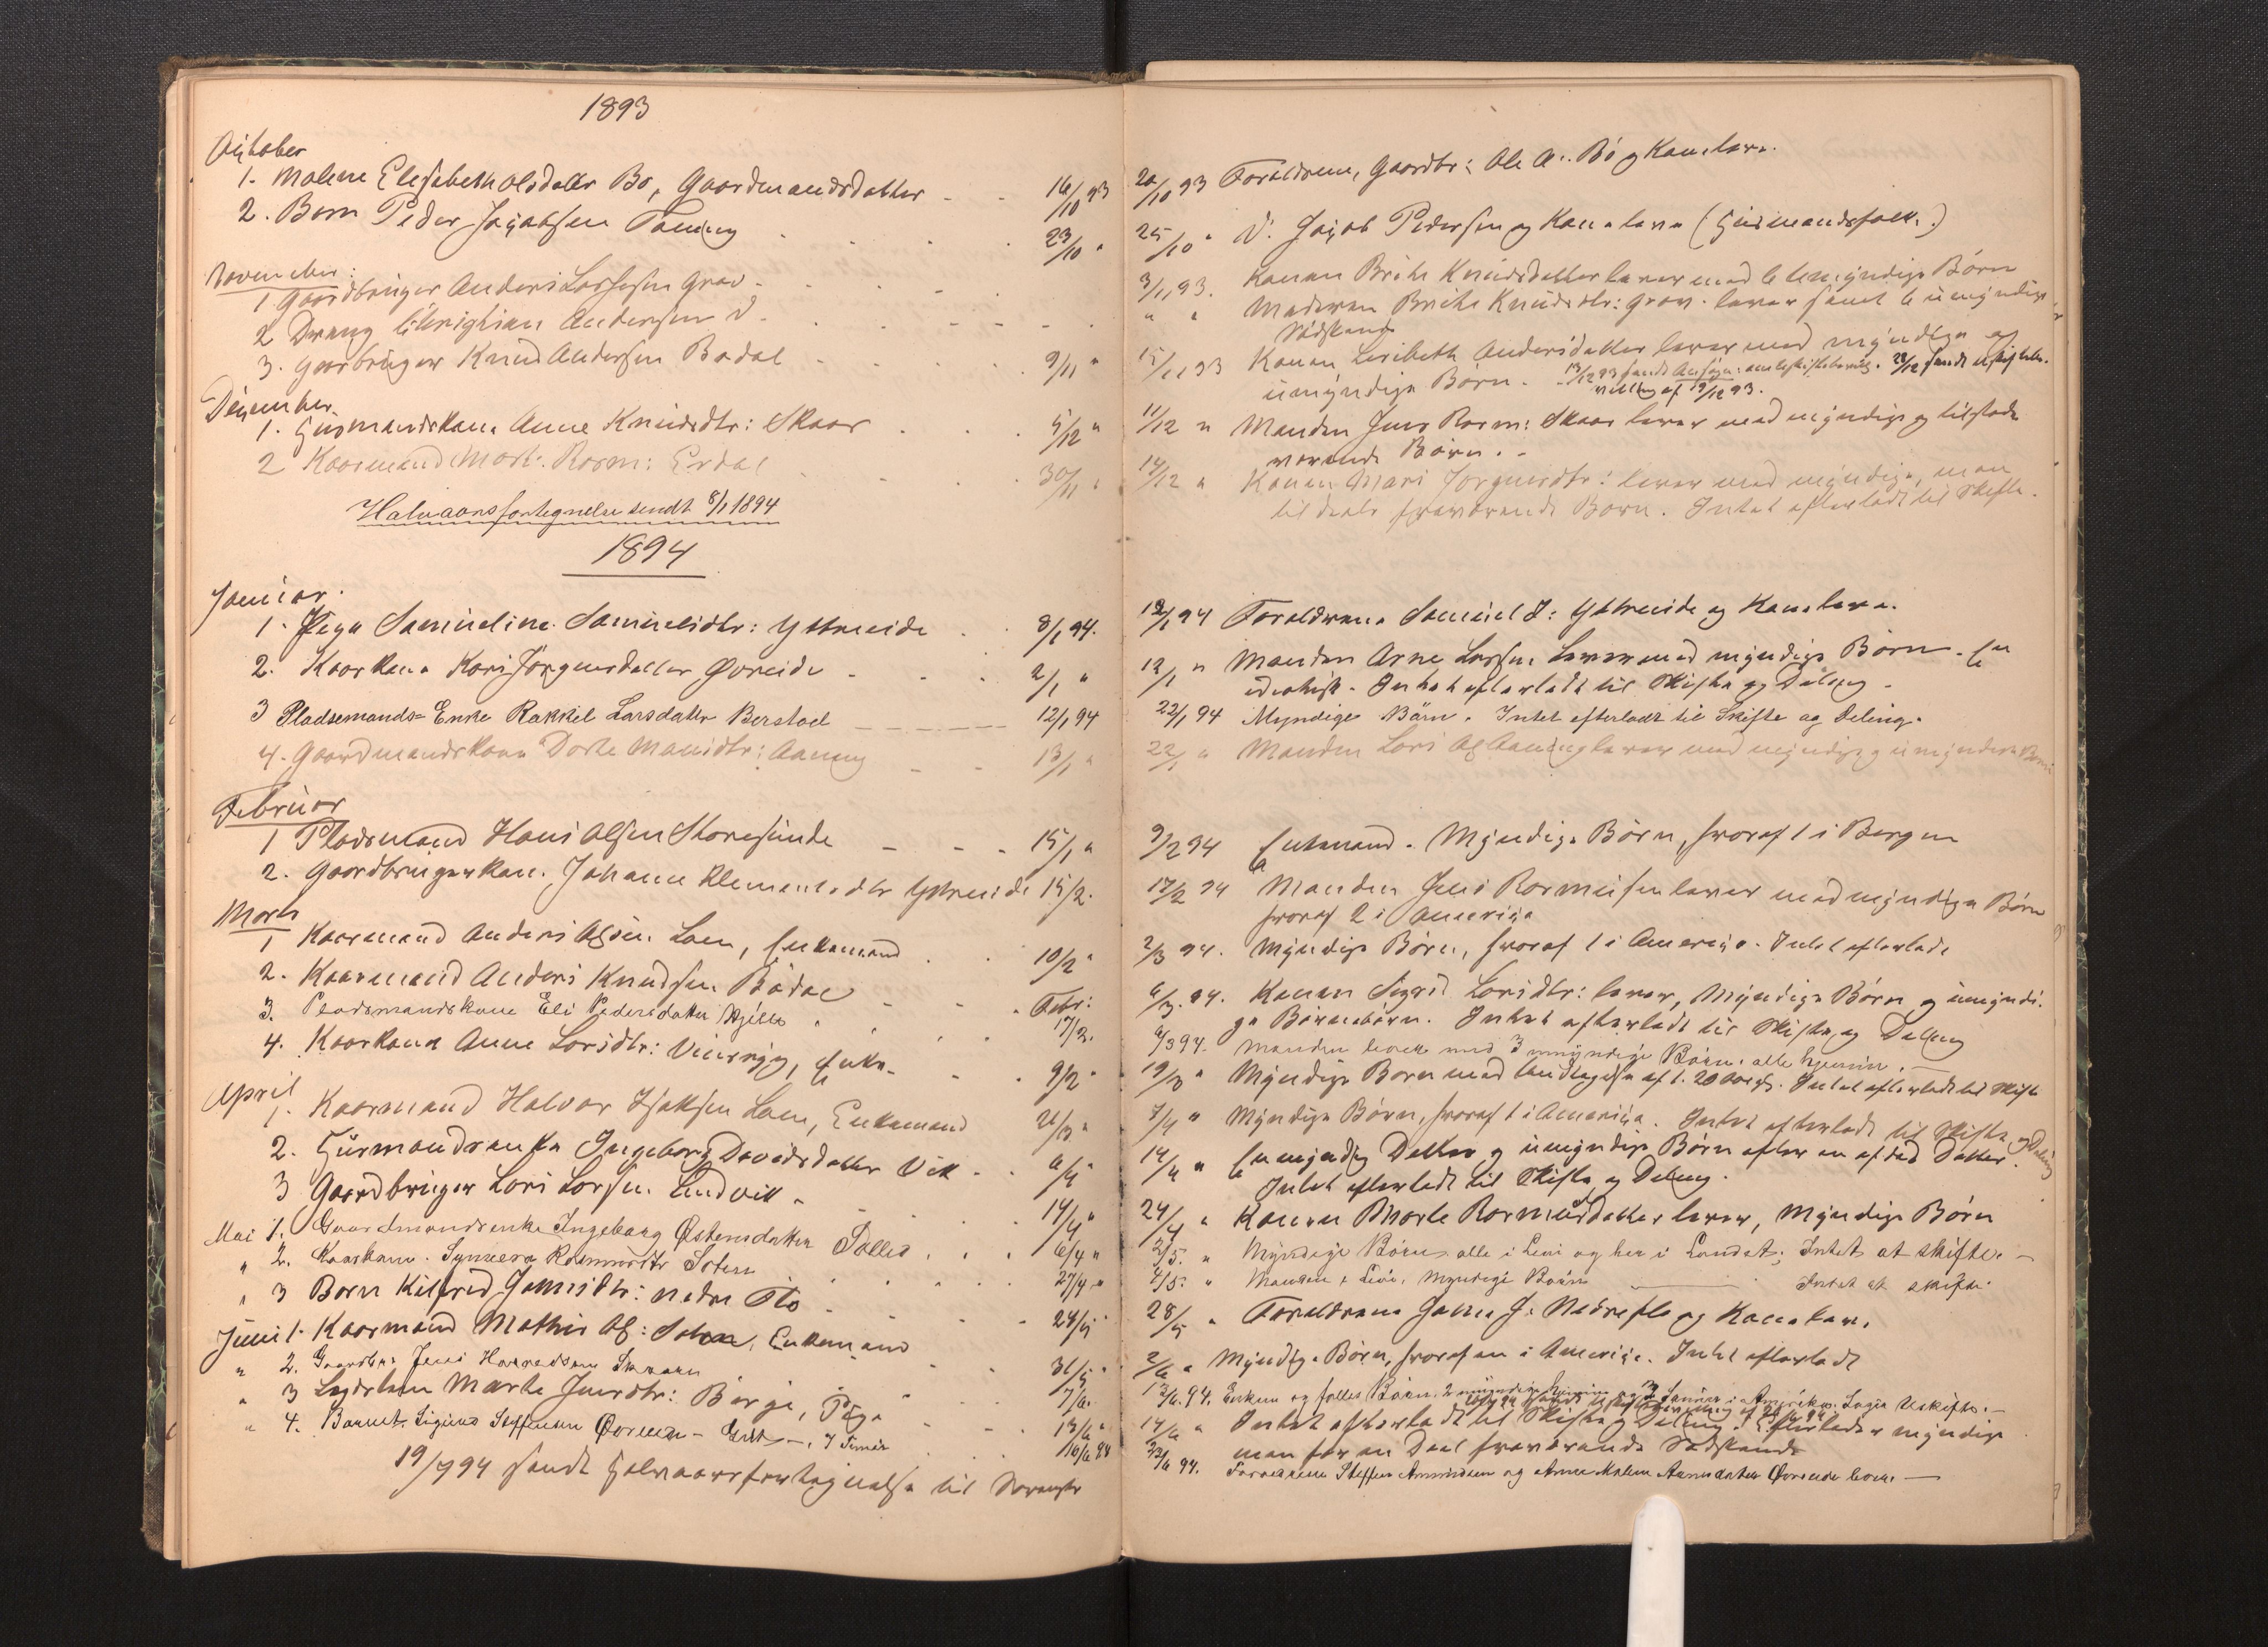 1893
October
1. Malene Elisabeth Olsdatter Bø, Gaardmandsdatter - - 16/10 93
2. Barn Peder Jacobsen Faning . . . . 23/10 "
November:
1 Gaardbruger Anders Lassesen Grov - . . .
2 Dreng Christian Andersen D. . . - - - .
3. Gaarbruger Knud Andersen Bødal - . . . 9/11 "
December
1. Huusmandskone Anne Knudsdtr: Skaar . . . 5/12 "
2 Kaarmand Mort. Rasm: Erdal . 30/11 "
Halvaarsfortegnelse sendt 8/1 1894
1894
Januar.
1. Pige Samueline Samuelsdtr: Ytreeide . . 8/1 94.
2. Kaarkone Kari Jørgensdatter Øvreide - . . 2/1 "
3 Pladsemands-Enke Rakkel Larsdatter Berstad - - - - 12/1 94
4. Gaardmandskone Dorte Monsdtr: Aaning - - 13/1 "
Februar
1 Pladsmand Hans Olsen Storesunde - - - 15/1 "
2. Gaardbrugerkone Johanne Klementsdtr Ytreeide 15/2.
Marts
1 Kaarmand Anders Olsen Loen, Enkemand . . 10/2 "
2. Kaarmand Anders Knudsen Bødal - - . Febr:
3. Pladsmandskone Eli Pedersdatter Hjelle . . . 17/2.
4. Kaarkone Anne Larsdtr: Vinsrygg, Enke - - . 9/2 "
April
1. Kaarmand Halvor Isaksen Loen, Enkemand 21/3 "
2. Huusmandsenke Ingeborg Davidsdatter Vik - . 6/4 "
3 Gaardbruger Lars Larsen Lindvik - 14/4 "
Mai 1. Gaardmandsenke Ingeborg Østensdatter Sollid . . . 6/4 "
" 2. Kaarkone. Synneva Rasmusdtr Soten 27/4 "
" 3 Barn Kilfrid Jonisdtr: nedre Flo - . . - 24/5 "
Juni 1. Kaarmand Mathis Ols: Soten, Enkemand . . 31/5 "
" 2. Gaardbr. Jens Skaaren . . . 7/6.
" 3 Lægdslem Marte Jensdtr: Berge, Pige - - . 13/6 "
" 4. Barnet Sigurd Steffensen Øvreeide - født -, 7 Timer . . 16/6 94
19/7 94 sendt Halvaarsfortegnelse til Sorenskr
20/10 93 Forældrene, Gaardbr: Ole A. Bø og Kone lever.
25/10 " D. Jacob Pedersen og Kone leve (Huusmandsfolk.)
3/11 93. Konen Brite Knudsdatter lever med 6 umyndige Børn
" " Moderen Brite Knudsdtr: Grov lever samt 6 umyndige
Sødskende
15/11 93 Konen Lisbeth Andersdatter lever med myndige og
umyndige Børn. - 13/12 93 sendt Ansøgn: om Uskiftebevilg. 28/12 sendt Uskiftebe-
villing af 19/12 93.
11/12 " Manden Jens Rasm: Skaar lever med myndige og tilstede
værende Børn. -
14/12 " Konen Mari Jørgensdtr: lever med myndige, men
til deels fraværende Børn. Intet efterladt til Skifte.
12/1 94 Forældrene Samuel J: Ytreeide og Kone leve.
12/1 " Manden Arne Lassen lever med myndige Børn. En
idiotisk. Intet efterladt til Skifte og Deling -
22/1 94 Myndige Børn. Intet efterladt til Skifte og Deling.
22/1 " Manden Lars Ols Aaning lever med myndige og umyndige Børn
9/2 94 Enkemand. Myndige Børn, hvoraf 1 i Bergen
17/2 94 Manden Jens Rasmussen lever med myndige Børn
hvoraf 2 i America
2/3 94. Myndige Børn, hvoraf 1 i America. Intet efterladt
6/3. 94. Konen Sigrid Larsdtr: lever, Myndige Børn og umyndi-
ge Børnebørn. Intet efterladt til Skifte og Deling
6/3 94. Manden lever med 3 umyndige Børn. alle hjemme. -
19/3 " Myndige Børn med Undtagelse af 1. 20 Aar gl. Intet efterladt til Skifte
7/4 " Myndige Børn, hvoraf 1 i America. Intet efterladt til Skifte og Deling
14/4 " En myndig Datter og umyndige Børn efter en afdød Datter.
Intet efterladt til Skifte og Deling.
24/4 " Konen Marte Rasmusdatter lever, Myndige Børn
2/5. " Myndige Børn alle i Live og her i Landet. Intet at skifte. -
4/5. " Manden i Live. Myndige Børn ——— Intet at skifte
28/5 " Forældrene J. Nedreflo og Kone leve.
2/6 " Myndige Børn, hvoraf en i America. Intet efterladt
13/6. 94. Enken og fælles Børn. 2 umyndige hjemme og 3 Sønner i Amerika. Søger Uskifte. -
14/6 " Intet efterladt til Skifte og Deling. Efterlader myndige
men for en Deel fraværende Sødskende
23/6 94. Forældrene Steffen Amundsen og Anne Malene Aamsdatter Øvreeide leve. -